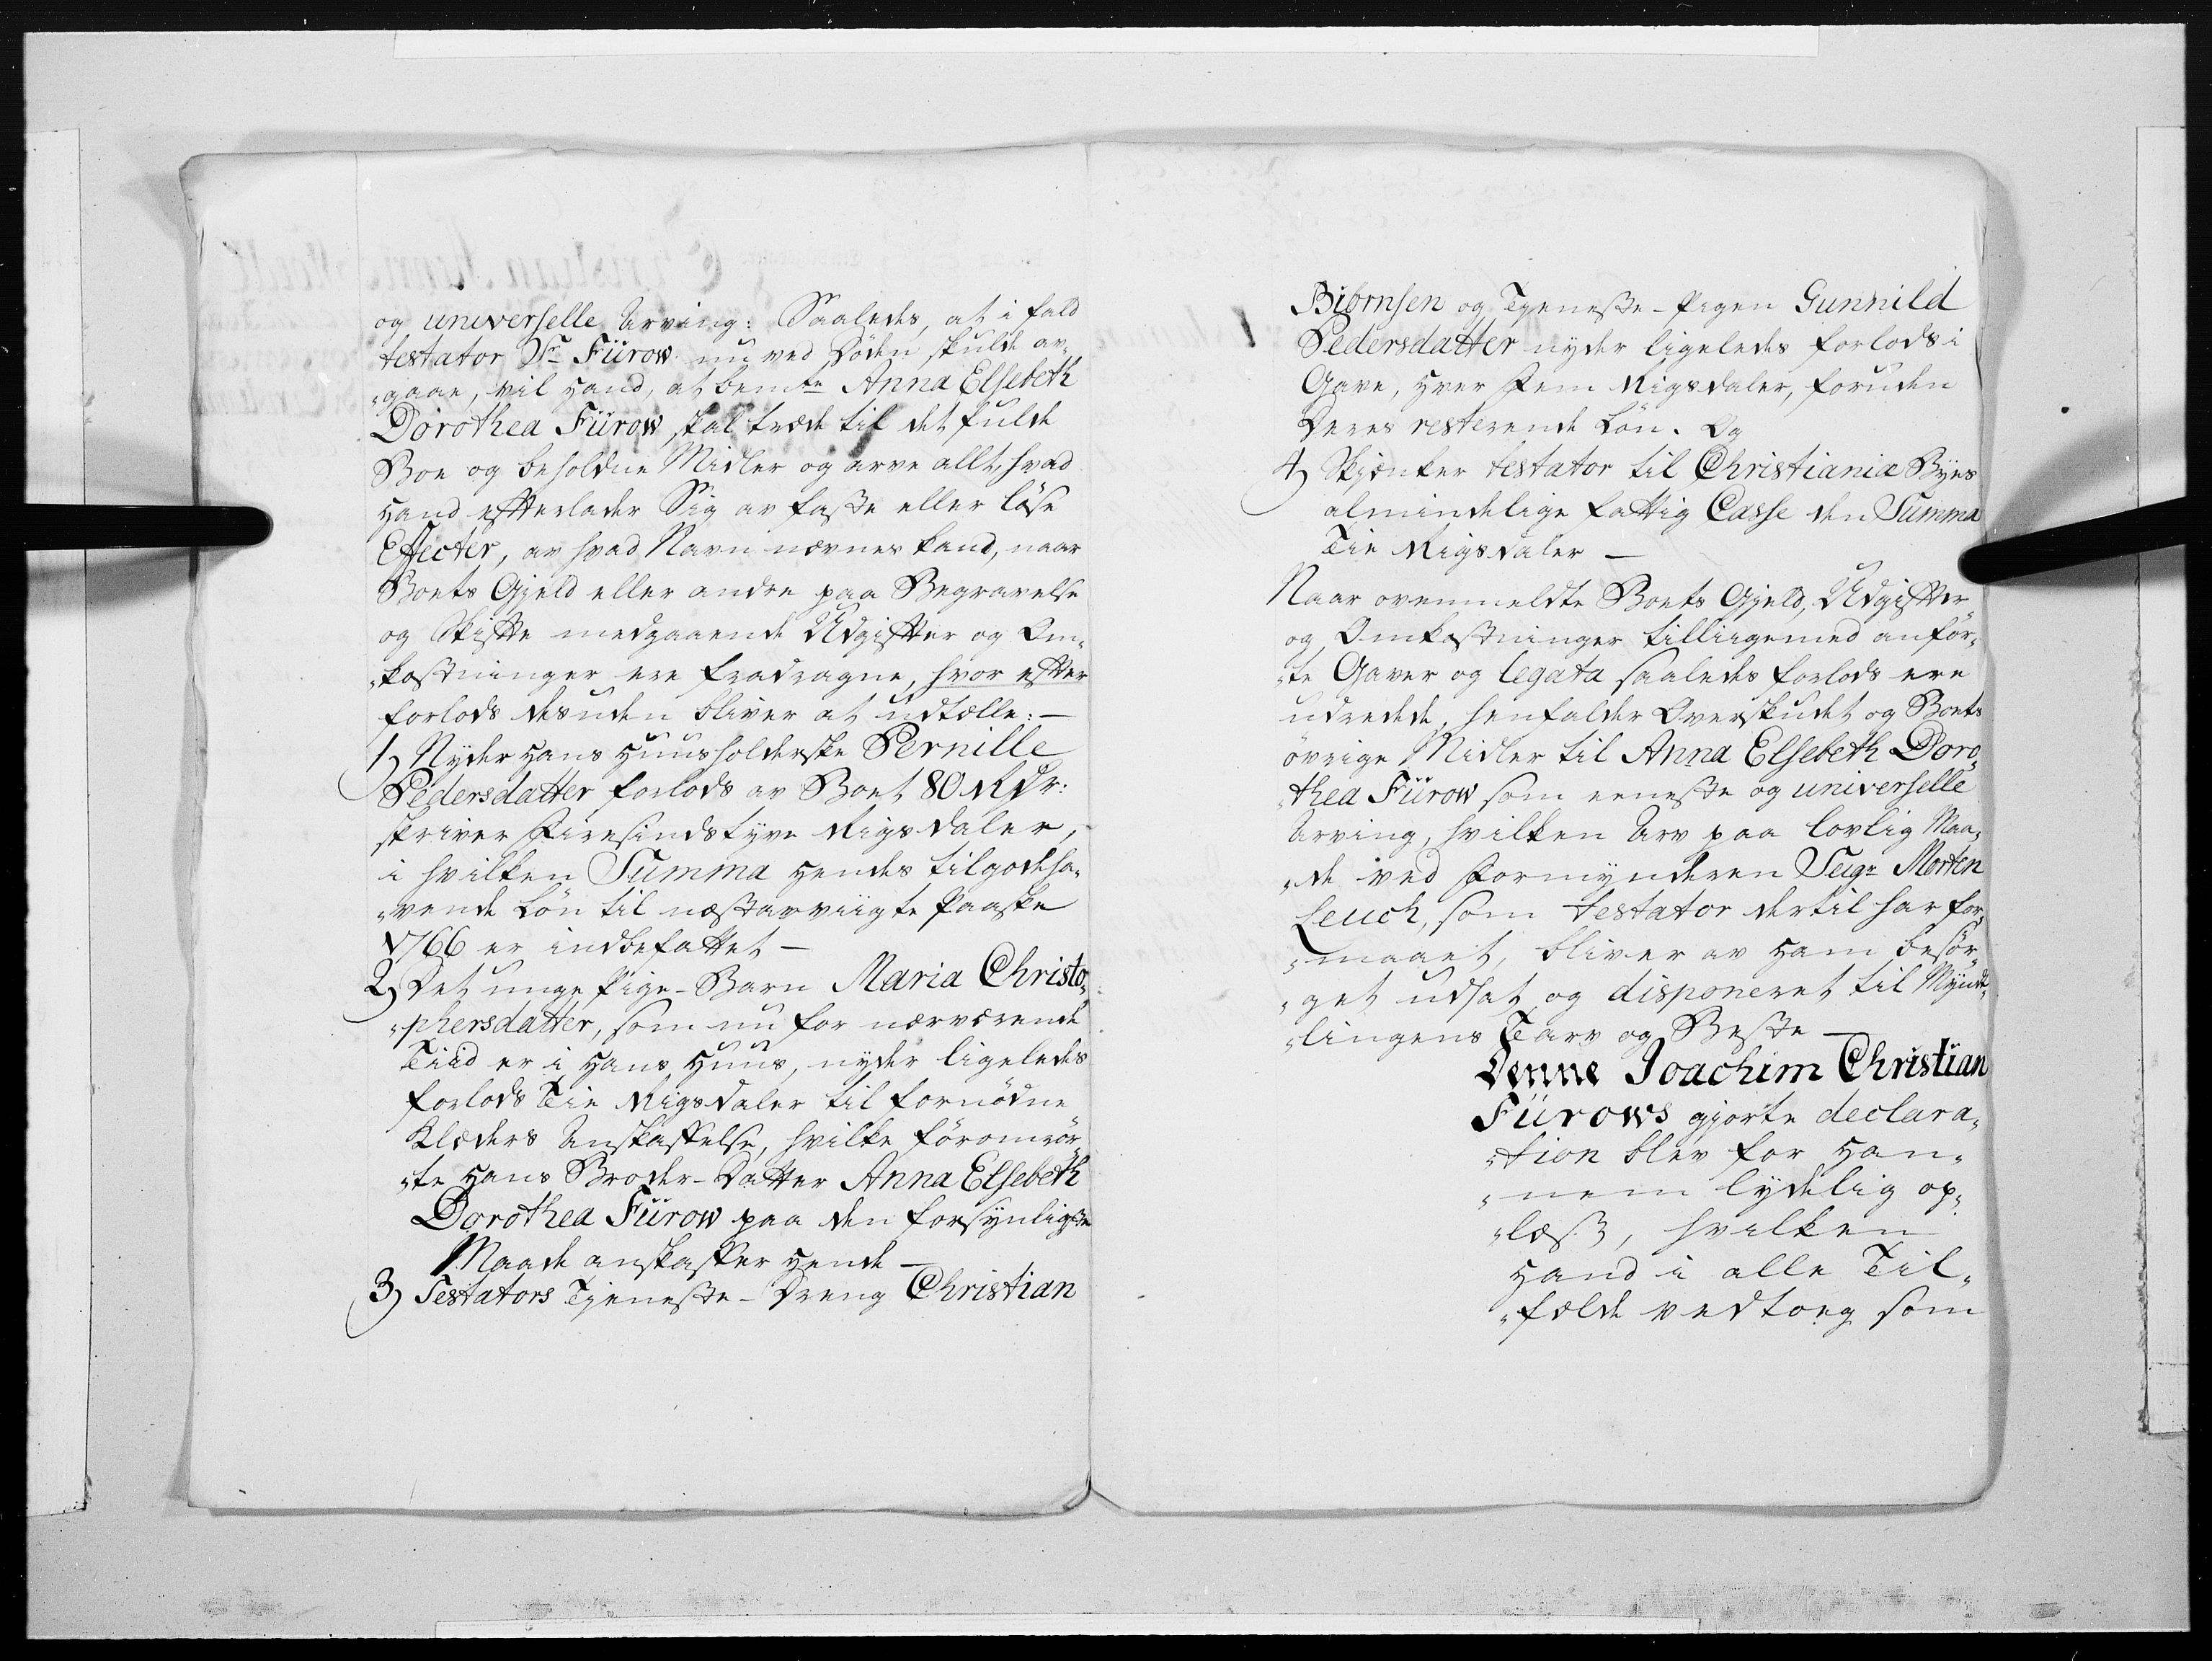 og universelle Arving: Saaledes, at i fald
testator Sr. Fürow nu ved Döden skulde av„
„gaae, vil hand, at bemte Anna Elsebeth
Dorothea Fürow skal træde til det fulde
Boe og beholdne Midler og arve allt, hvad
hand efterlader Sig av faste eller löse
Effecter, av hvad Navn nævnes kand, naar
Boets Gjeld eller andre paa Begravelse
og Skifte medgaaende Udgifter og Om„
„kostninger ere fradragne, hvor efter
forlods desuden bliver at udtælle: —
1) Nyder hans Huusholderske Pernille
Pedersdatter forlods av Boet 80 Rdr:
skriver Firesindstyve Rigsdaler,
i hvilken Summa hendes tilgodeha„
„vende Lön til næstavviigte Paaske
1766 er indbefattet —
2) Det unge Pige-Barn Maria Christo„
„phersdatter, som nu for nærværende
Tiid er i hans Huus, nyder ligeledes
forlods Tie Rigsdaler til fornödne
Klæders Anskaffelse, hvilke föromrör„
„te hans Broder-Datter Anna Elsebeth
Dorothea Fürow paa den forsynligste
Maade anskaffer hende —
3) Testators Tjeneste-Dreng Christian
Biörnsen og Tjeneste-Pigen Gunnild
Pedersdatter nyder ligeledes forlods i
Gave, hver Fem Rigsdaler, foruden
Deres resterende Lön. Og
4) Skjænker testator til Christianiæ Byes
almindelige fattig Casse den Summa
Tie Rigsdaler —
Naar ovenmeldte Boets Gjeld, Udgifter
og Omkostninger tilliigemed anför„
„te Gaver og legata saaledes forlods ere
udredede, henfalder Overskudet og Boets
övrige Midler til Anna Elsebeth Doro„
„thea Fürow som eeneste og universelle
Arving, hvilken Arv paa lovlig Maa„
„de ved Formynderen Seigr Morten
Leuch, som testator dertil har for„
„maaet, bliver av ham besör„
„get udsat og disponeret til Mynd„
„lingens Tarv og Beste —
Denne Joachim Christian
Fürows gjorte declara„
„tion blev for han„
„nem lydelig op„
„læst, hvilken
hand i alle Til„
„fælde vedtoeg som